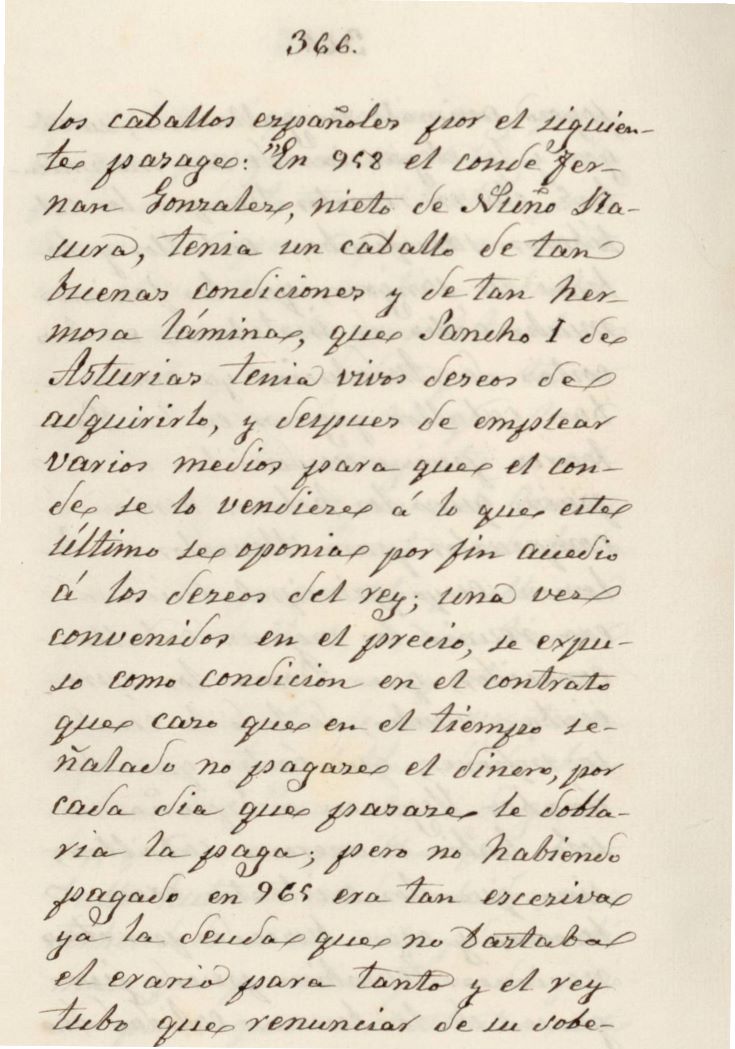 366.
los caballos españoles por el siguien-
te pasage: "En 958 el conde Fer-
nan Gonzalez, nieto de Nuño Ra-
sura, tenia un caballo de tan
buenas condiciones y de tan her-
mosa lámina, que Sancho I de
Asturias tenia vivos deseos de
adquirirlo, y despues de emplear
varios medios para que el con-
de se lo vendiese á lo que este
último se oponia por fin accedio
á los deseos del rey; una vez
convenidos en el precio, se expu-
so como condicion en el contrato
que caso que en el tiempo se-
ñalado no pagase el dinero, por
cada dia que pasase le dobla-
ria la paga; pero no habiendo
pagado en 965 era tan escesiva
yá la deuda que no bastaba
el erario para tanto y el rey
tubo que renunciar de su sobe-